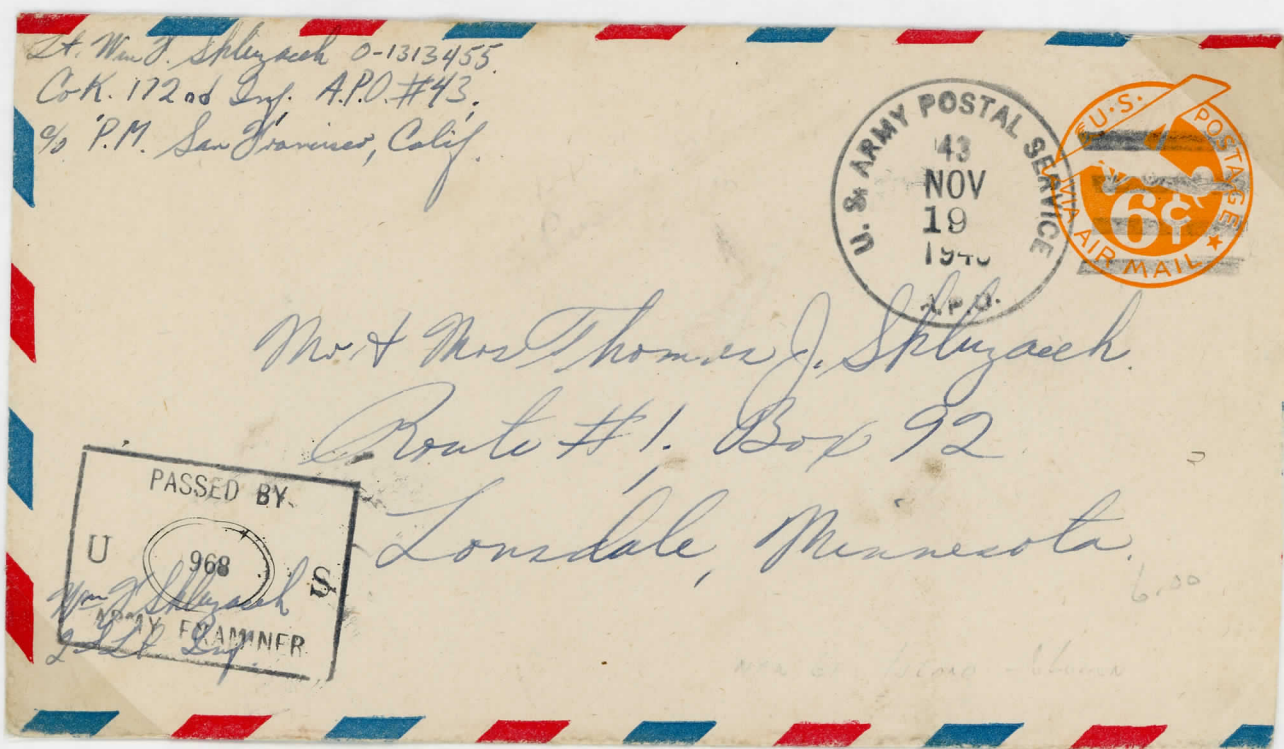 Lt. Wm F. Skluzacek O-1313455
Co K. 172nd Inf. A.P.O. #43.
c/o P.M. San Francisco, Calif.
U. S. ARMY POSTAL SERVICE
43
NOV
19
194
A.P.O.
U.S. POSTAGE
VIA AIR MAIL
6¢
Mr. & Mrs Thomas J. Skluzacek.
Route #1, Box 92
Lonsdale, Minnesota.
PASSED BY
U 968 S
ARMY EXAMINER
Wm F Skluzacek
2nd Lt Inf.
6.00